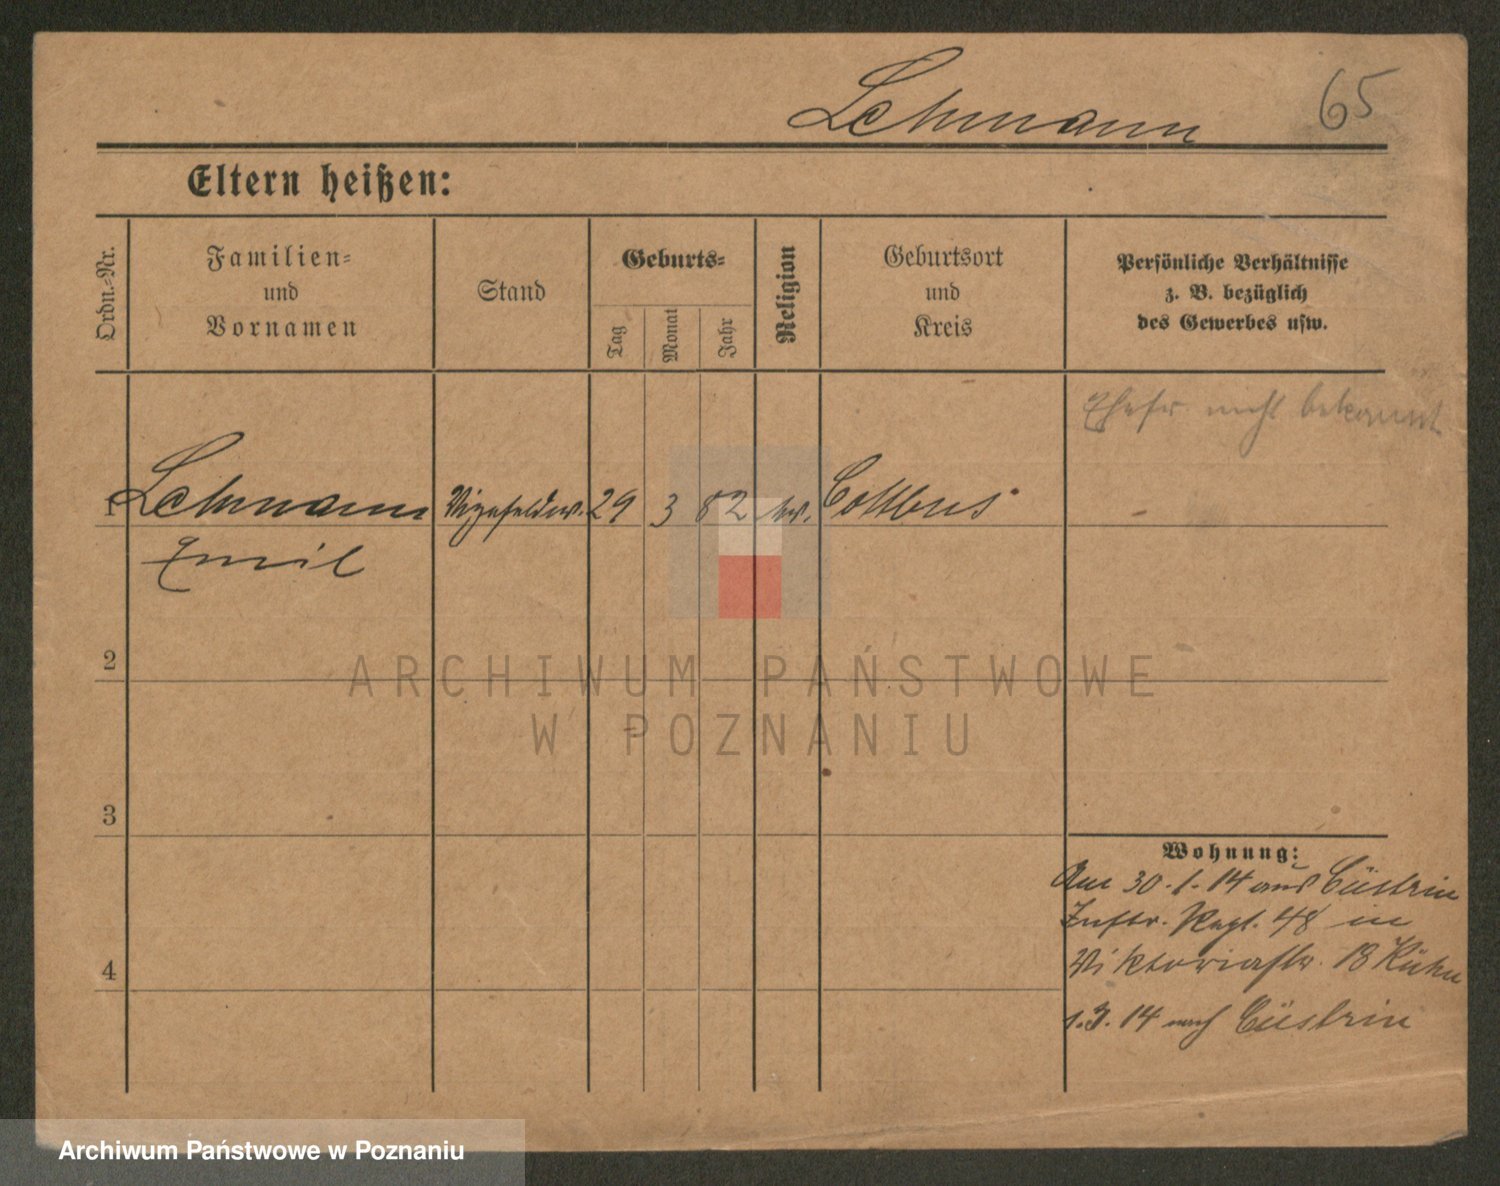 Lehmann
65
Eltern heißen:
Ordn.-Nr.
Familien-
und
Vornamen
Stand
Geburts-
Tag
Monat
Jahr
Religion
Geburtsort
und
Kreis
Persönliche Verhältnisse
z. B. bezüglich
des Gewerbes usw.
nicht bekannt
1 Lehmann Vizefeldw. 29 3 82 ev. Cottbus
Emil
2
3
4
Wohnung:
Am 30.1.14 aus Cüstrin
Inftr. Regt. 48 in
Viktoriastr. 18 Kühn
1.3.14 nach Cüstrin
ARCHIWUM PAŃSTWOWE
W POZNANIU
Archiwum Państwowe w Poznaniu